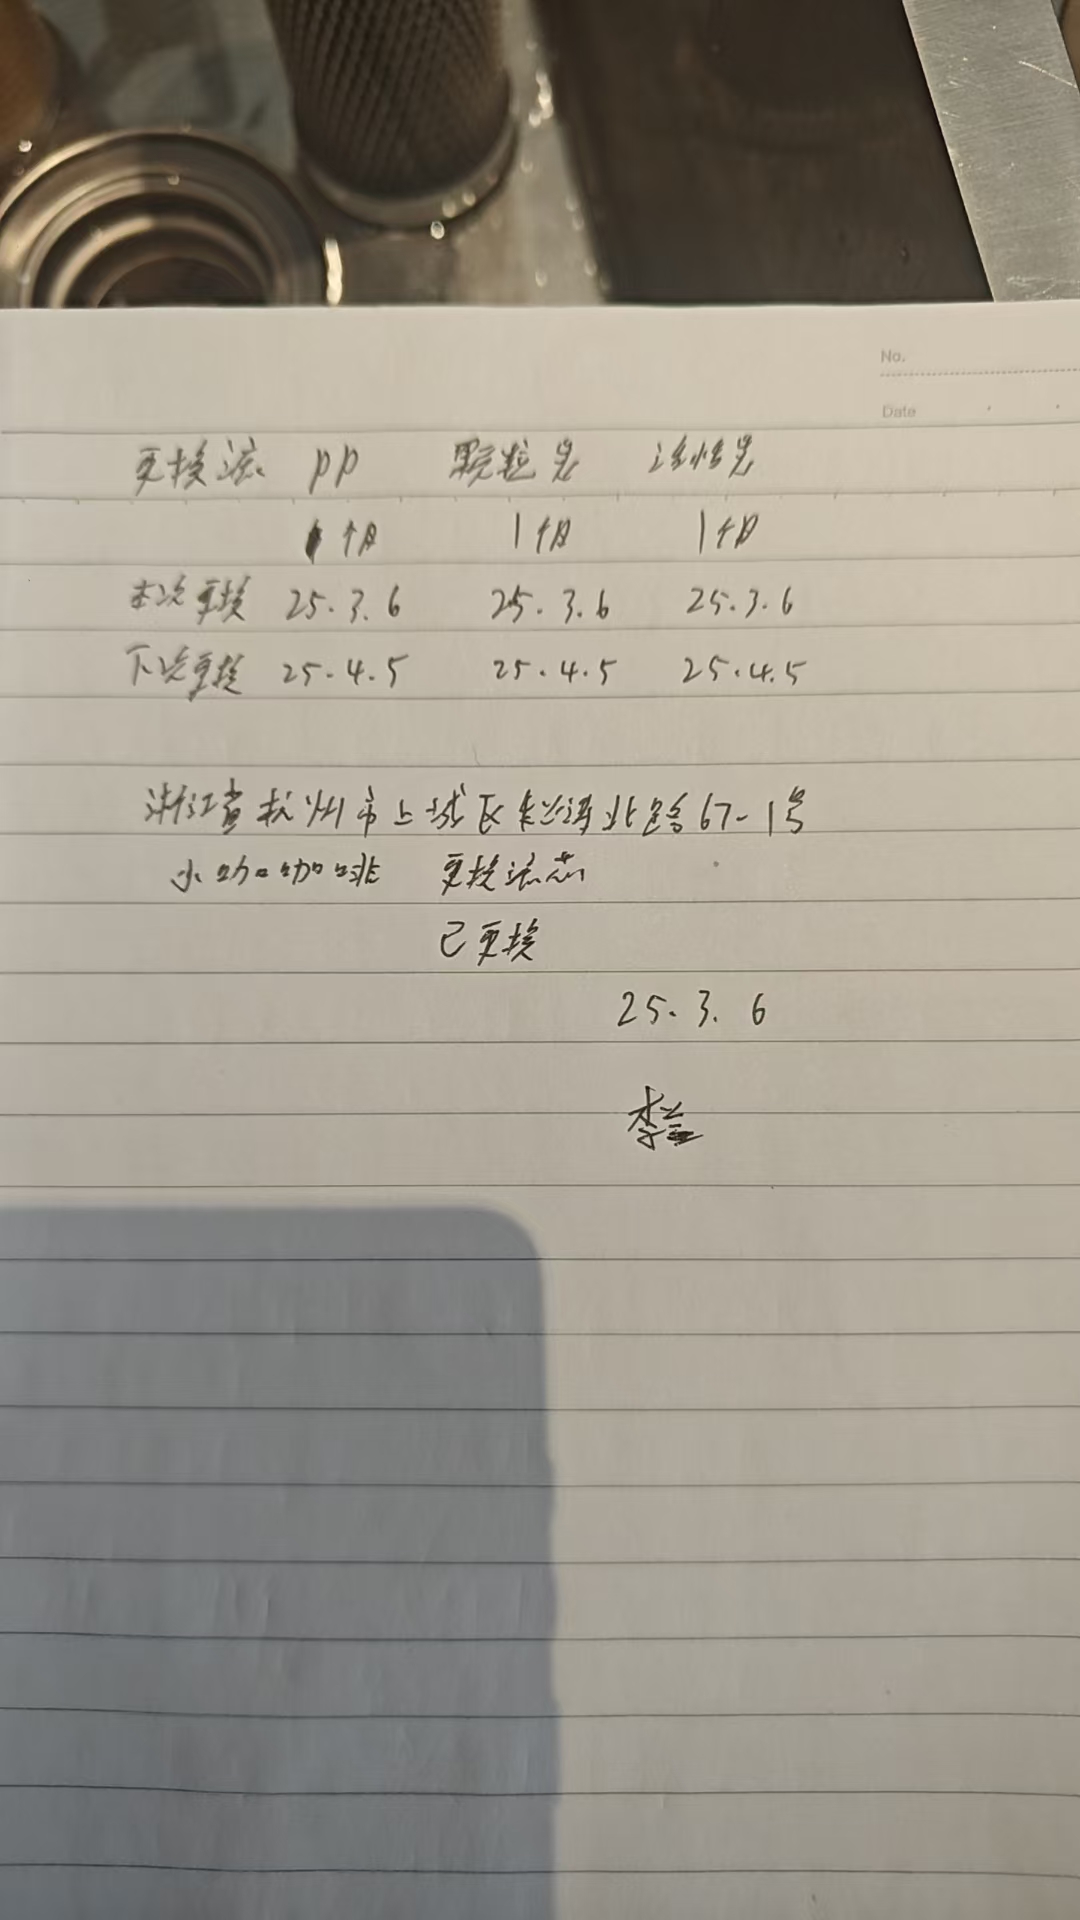 No.
Date
更换滤 PP 颗粒炭 活性炭
1个月 1个月 1个月
本次更换 25.3.6 25.3.6 25.3.6
下次更换 25.4.5 25.4.5 25.4.5
浙江省杭州市上城区 北路67-1号
小咖咖啡 更换滤芯
已更换
25.3.6
李